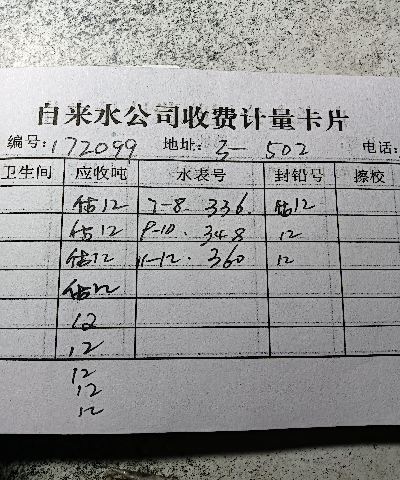 自来水公司收费计量卡片
编号: 172099 地址: 3-502 电话:
卫生间 应收吨 水表号 封铅号 擦校
估12 7-8. 336. 估12
估12 9-10. 348 12
估12 11-12. 360 12
估12
12
12
12
12
12